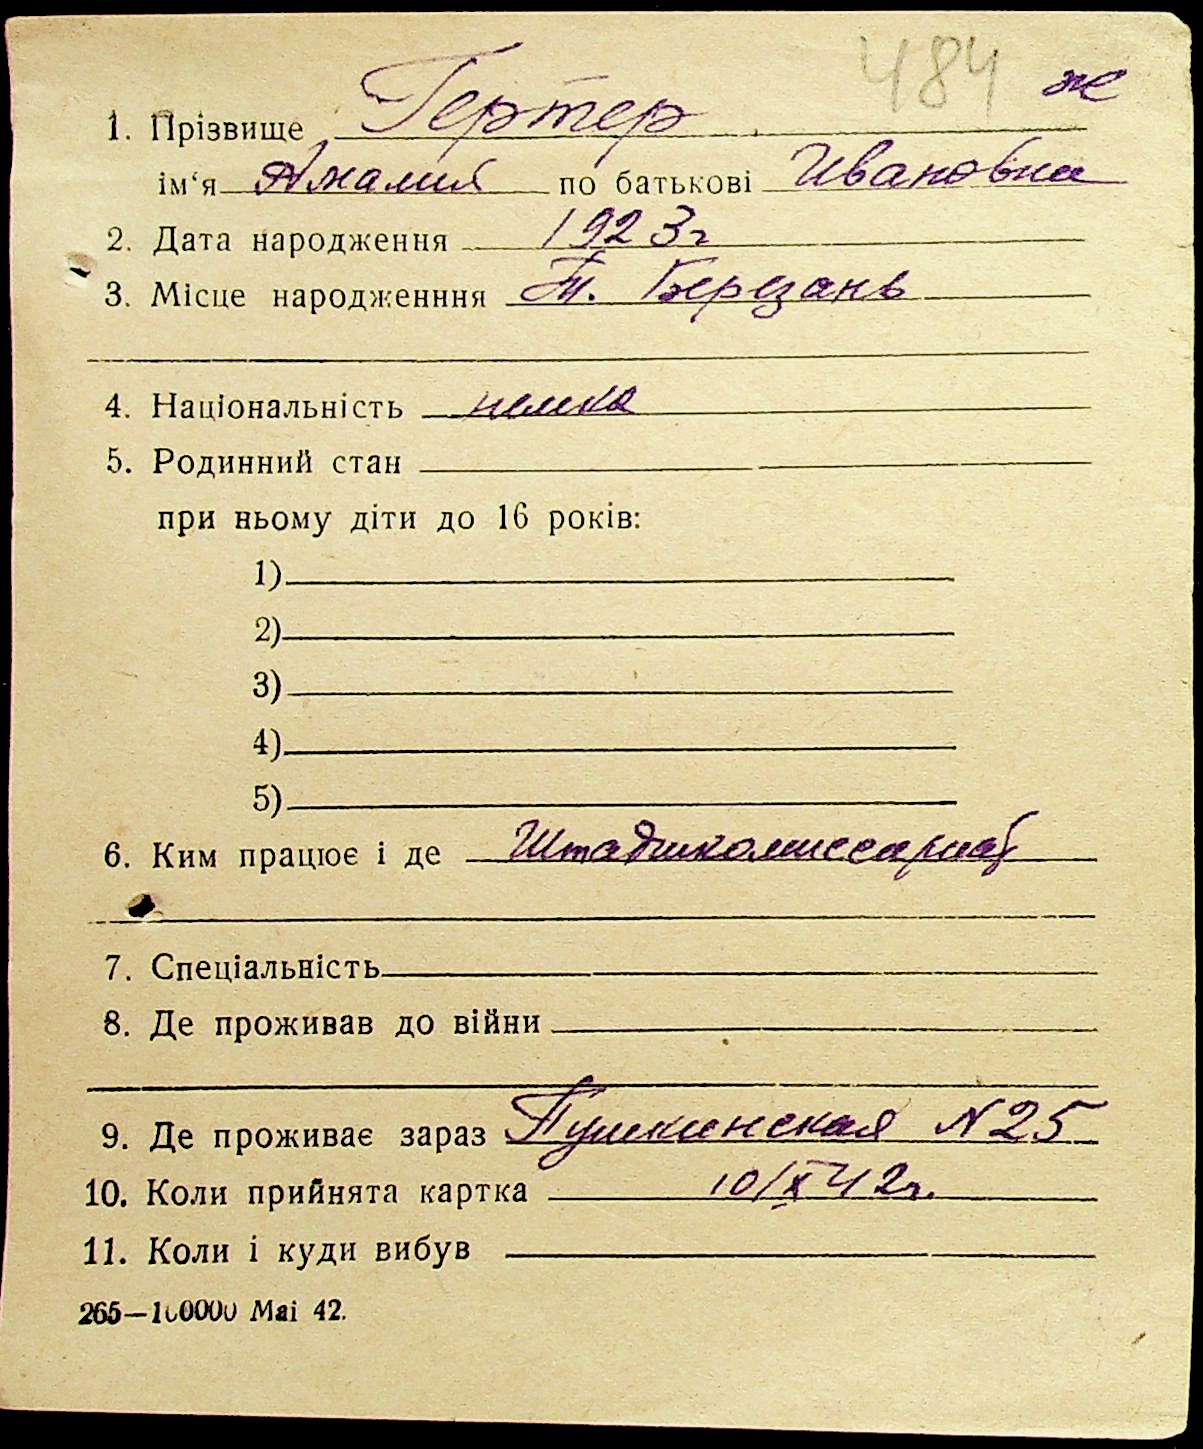 484 же
1. Прізвище Гертер
ім‘я Амалия по батькові Ивановна
2. Дата народження 1923г
3. Місце народженння Т. Березань
4. Національність немка
5. Родинний стан
при ньому діти до 16 років:
1)
2)
3)
4)
5)
6. Ким працює і де Штадткомиссариат
7. Спеціальність
8. Де проживав до війни
9. Де проживає зараз Пушкинская N25
10. Коли прийнята картка 10/X 42г.
11. Коли і куди вибув
265—100000 Маі 42.